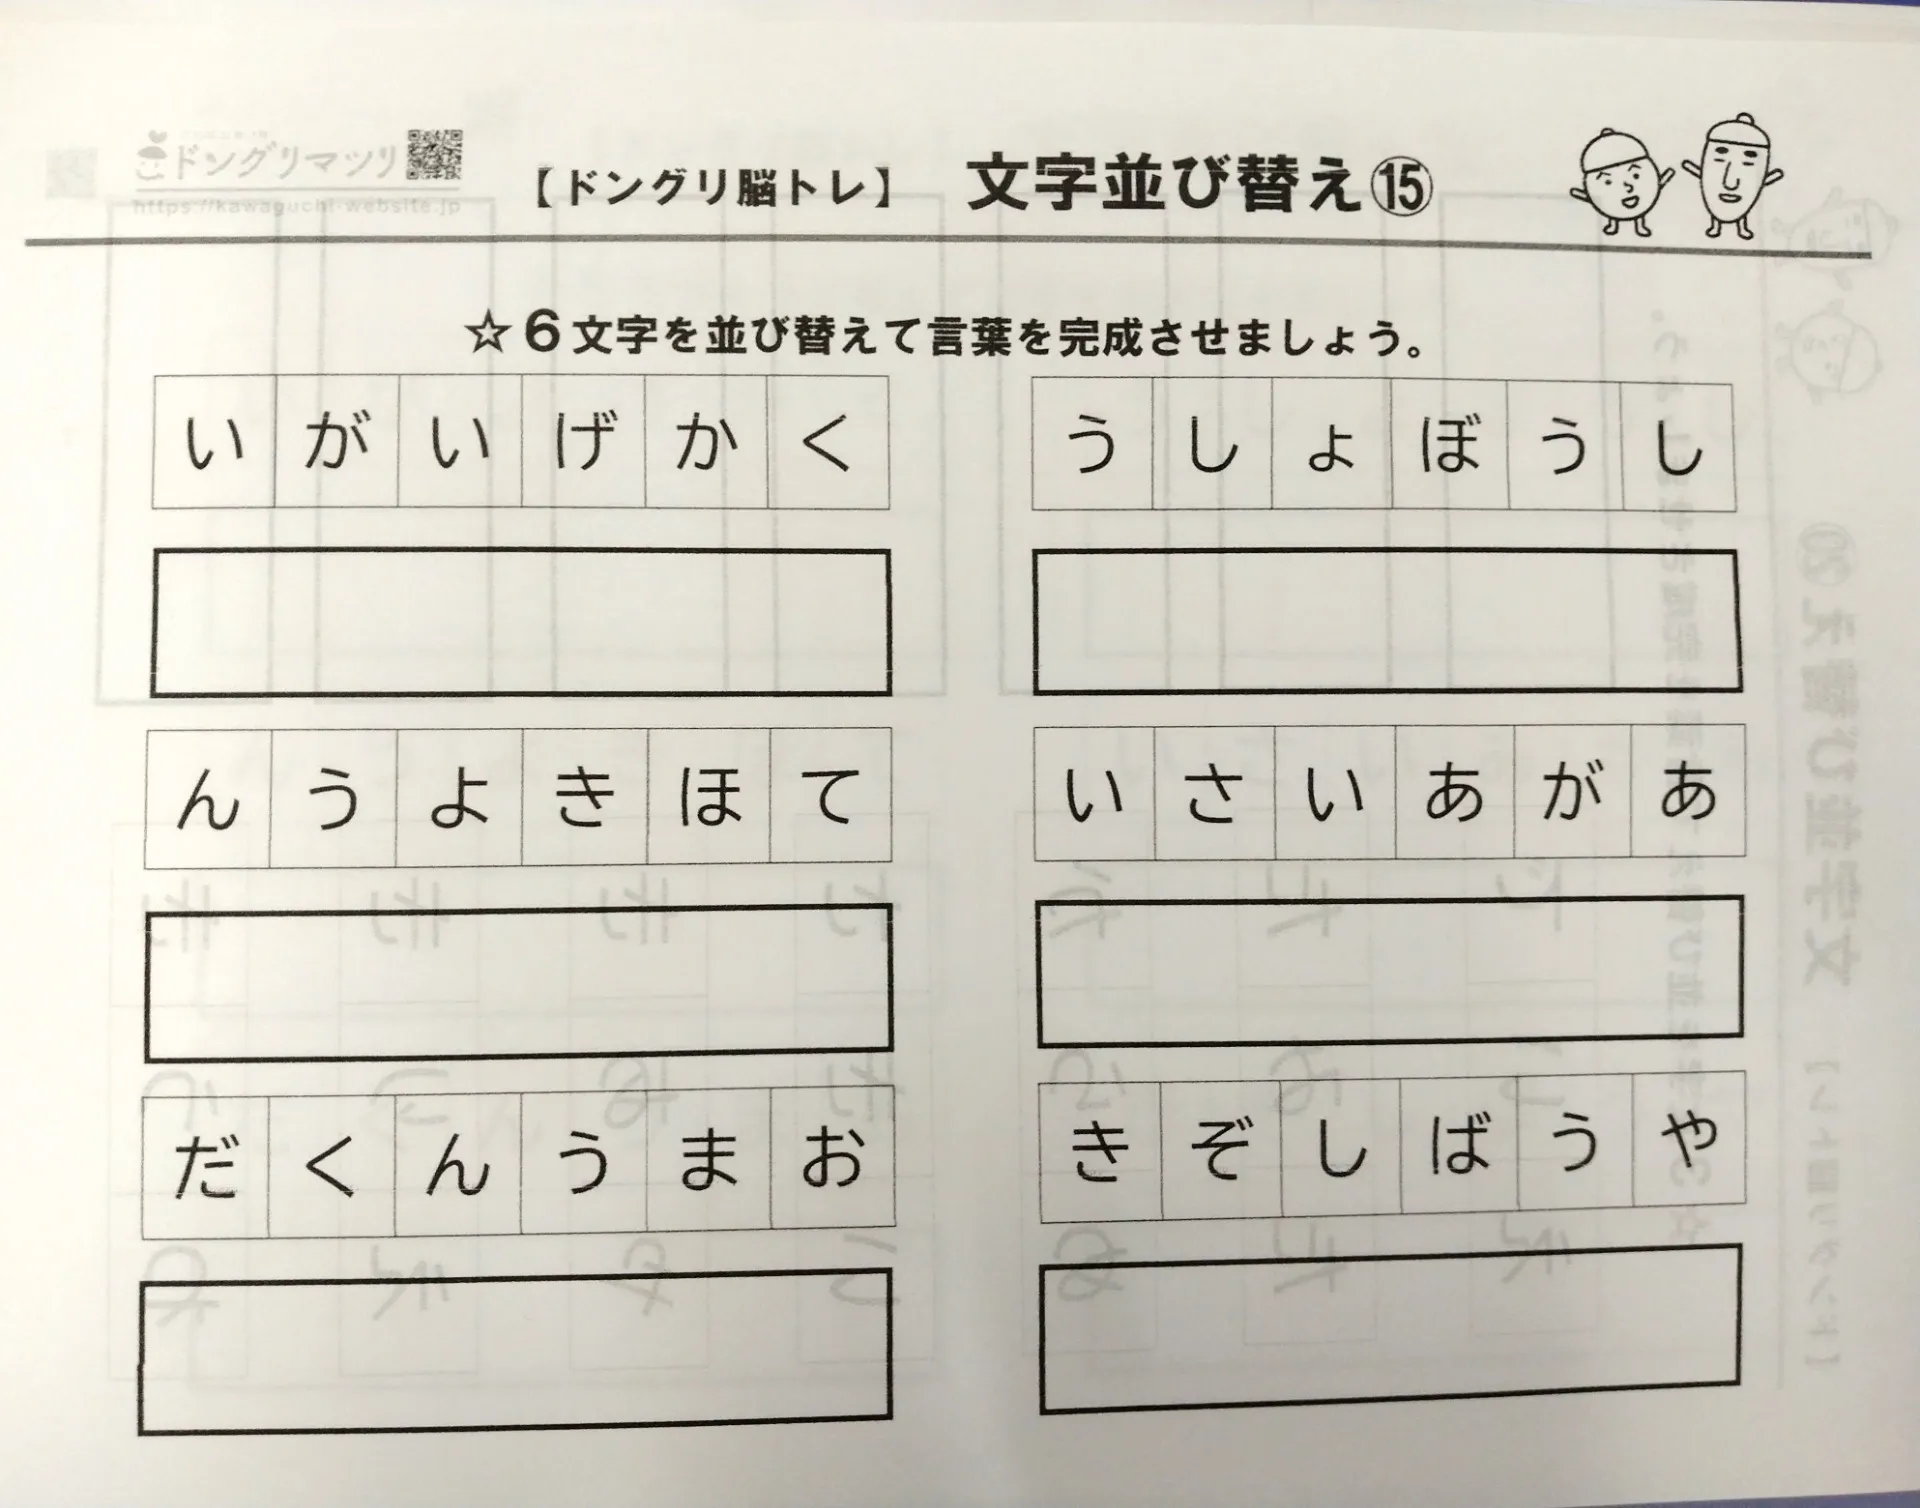 ドングリマツリ
https://kawaguchi-website.jp
【ドングリ脳トレ】 文字並び替え⑮
☆6文字を並び替えて言葉を完成させましょう。
い が い げ か く
う し ょ ぼ う し
ん う よ き ほ て
い さ い あ が あ
だ く ん う ま お
き ぞ し ば う や